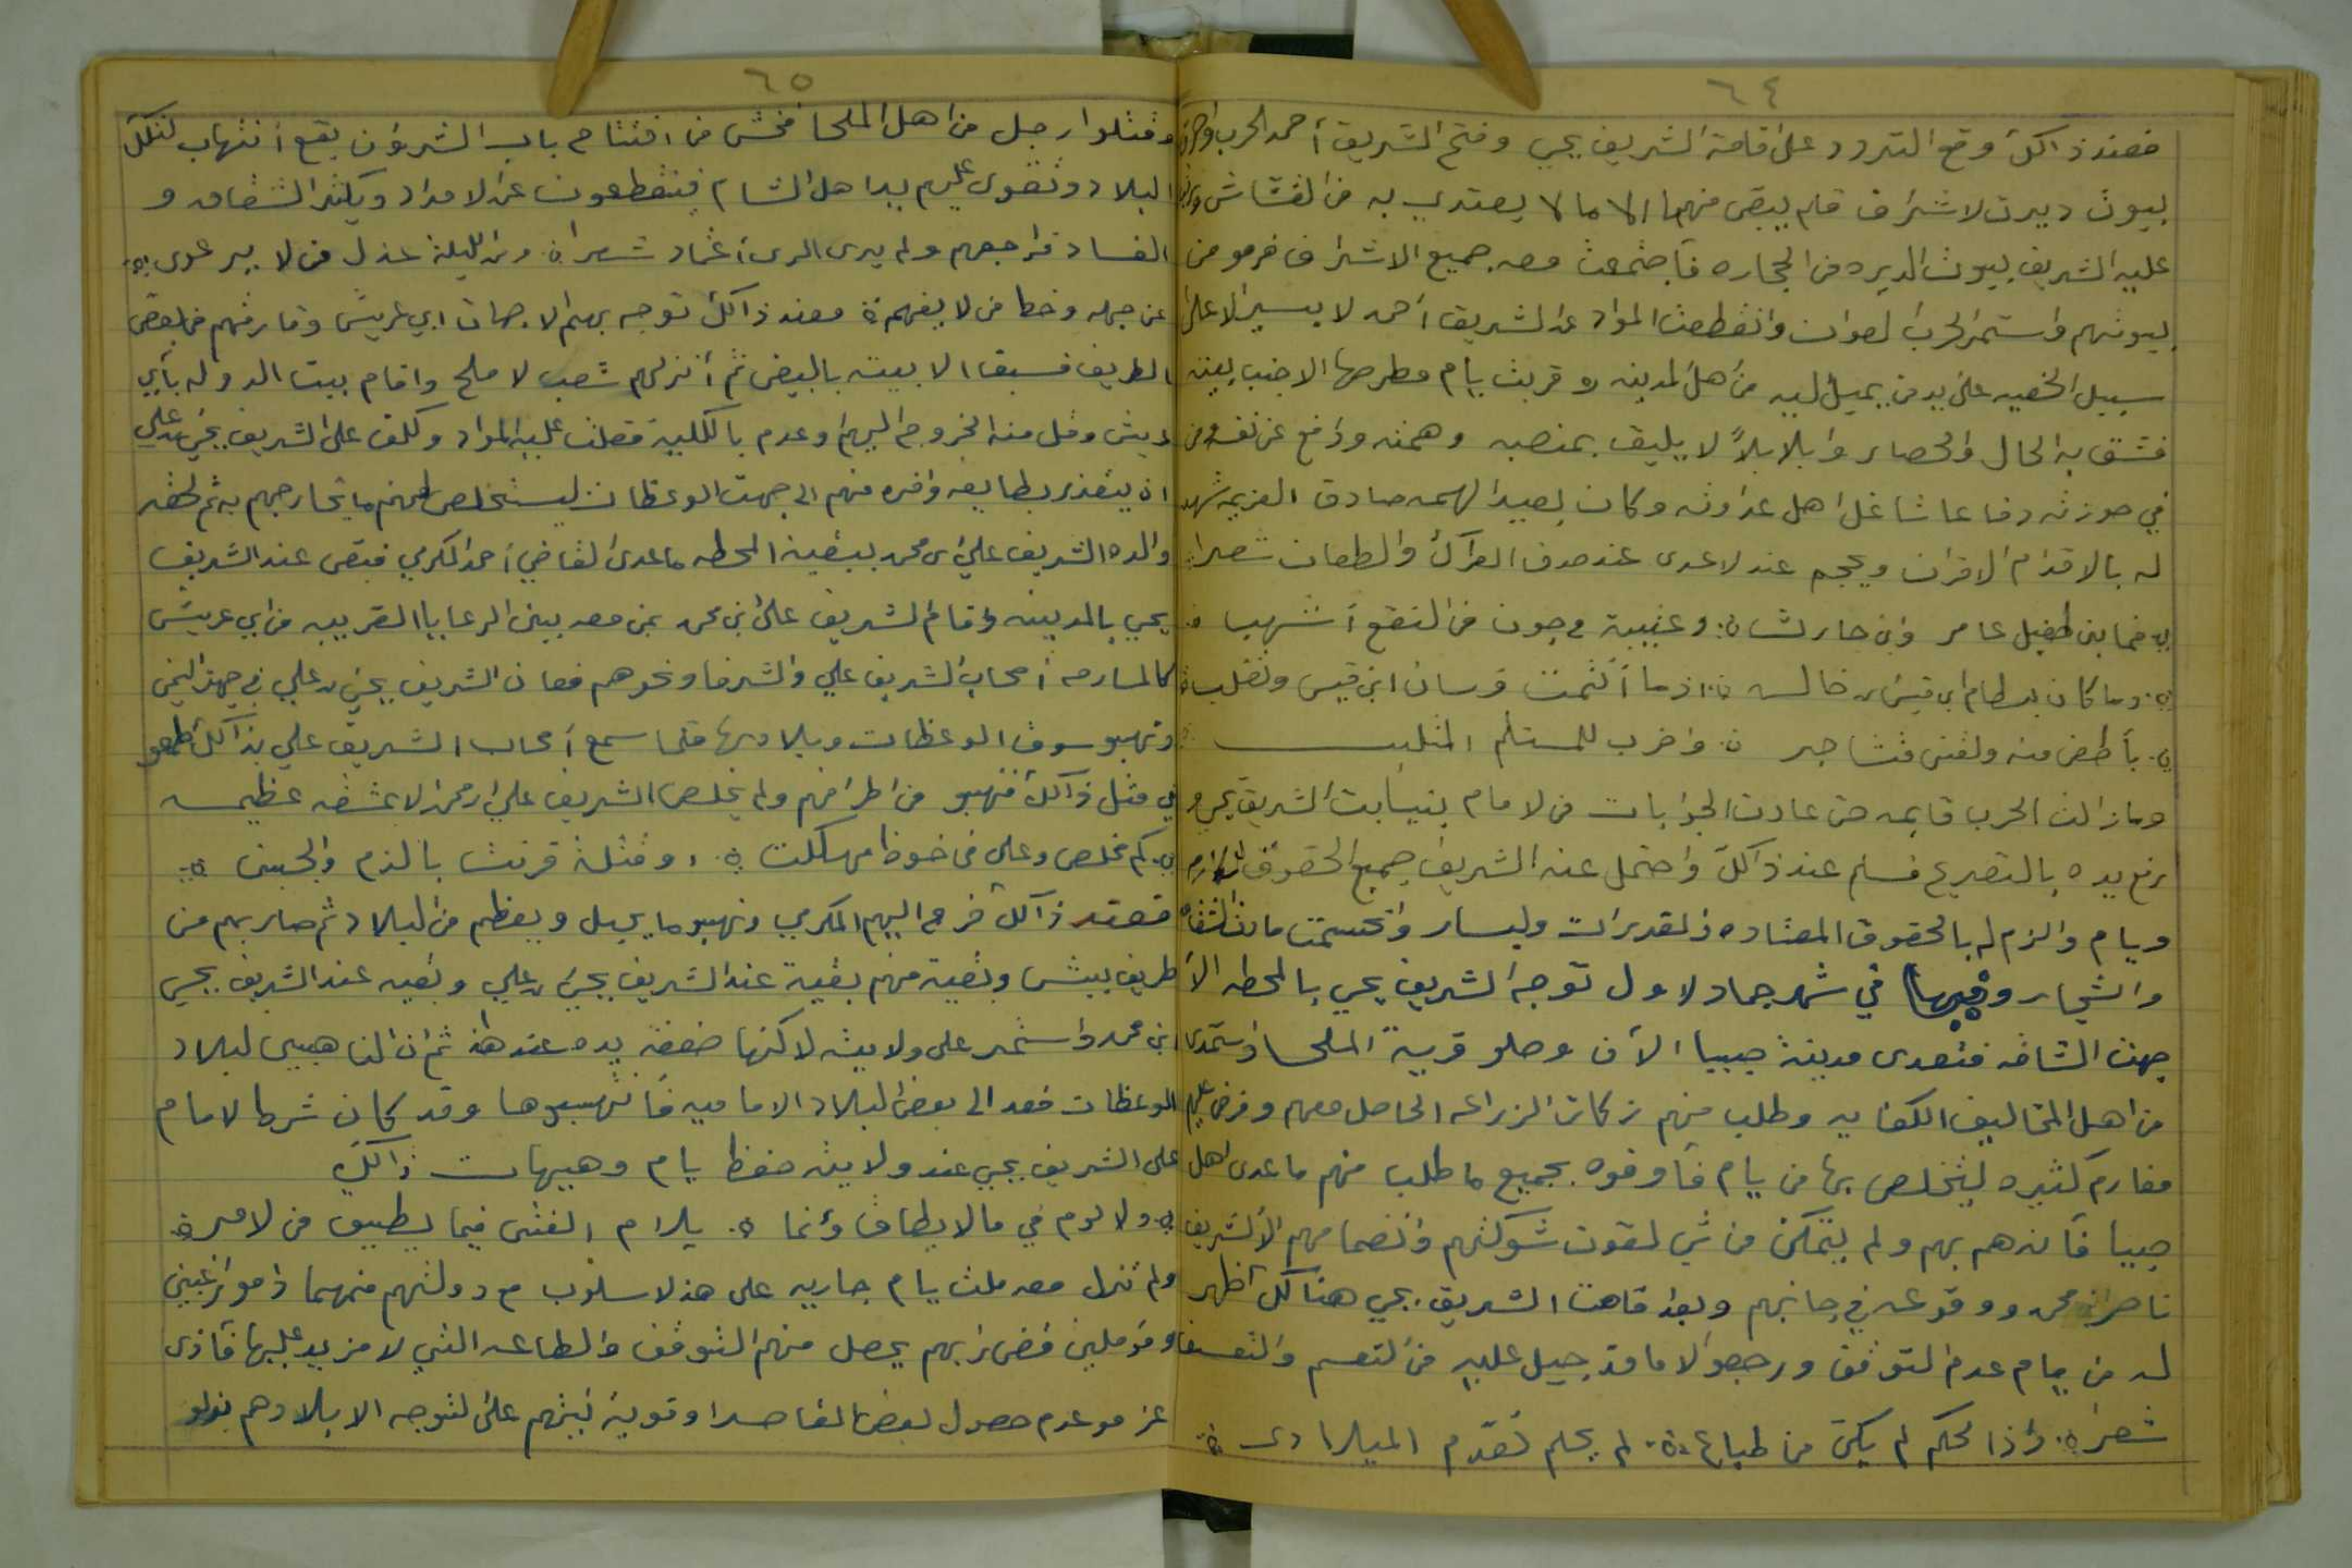 ٦٤
فعند ذالك وقع التردد على اقامة الشريف يحيي وفتح الشريف أحمد الحرب واحرق
بيوت ديرت لاشراف فلم يبقى منهما الا ما لا يعتدي به من القشاش
عليه الشريف بيوت الديره من الحجاره فأجتمعت معه جميع الاشراف فرمو من
بيوتهم واستمر الحرب لعوان وانقطعت المواد عن الشريف أحمد لا يسير الا على
سبيل الخفيه على يد من يميل اليه من اهل المدينه وقربت يام مطرحها الاجنب
فشق به الحال والحصار وابلا بلاً لا يليق بمنصبه وهمته ودافع عن نفسه ومن
في حوزته دفاعا شاغل اهل عداوته وكان بعيد الهمه صادق العزيمه شهد
له بالاقدام الاقران ويحجم عند لاعدى عند صدق العراك والطعان شعرا
فما بن طفيل عامر وابن حارشان وعتيبة مجون من النقع أشهب
وما كان بسطام ابن قيس ابن خالد اذ ما ألتمت فرسان ابن قيس وتغلب
بأطعن منه ولقنى متشاجر واضرب للمستلم المتلبب
وما زالت الحرب قايمه حتى عادت الجوابات من لامام بنيابت الشريف يحي و
برفع يده بالتصريح فسلم عند ذالك واحتمل عنه الشريف جميع الحقوق
ويام والزم له بالحقوق المعتاده والمقدرات وليسار وانحسمت مادت الشقاق
والشجار وفيها في شهر جماد لاول توجه الشريف يحي بالمحطه الا
جهت الشافه فتعدى مدينة صبيا الآن وصلو قرية الملحا واستمدى
من اهل المخاليف الكفايه وطلب منهم زكات الزراعه الحاصل معهم وفرض عليهم
مغارم كثيره ليتخلص بها من يام فأوفوه بجميع ما طلب منهم ما عدى اهل
صبيا فأنهم بهم ولم يتمكن من شي لقوت شوكتهم وانضمامهم الا الشريف
ناصر ابن محمد ووقوعه في جانبهم وبعد اقامت الشريف يحي هنالك أظهر
له من يام عدم التوفق ورجعو الا ما قد جبل عليه من التعسم والتعسف
شعرا واذا لحكم لم يكن من طباع لم يحلم تقدم الميلادى
٦٥
وقتلوا رجل من اهل الملحا فخشى من افتتاح باب الشر وان يقع أنتهاب لتلك
البلاد وتقوى عليهم يد اهل الشام فينقطعون عن لامداد ويكثر الشقاق و
الفساد فراجعهم ولم يرى الرى أغماد شعرا ومن البلية عذل من لا يرعوى
عن جهله وخطا من لا يفهم فعند ذالك توجه بهم الا جهات ابي عريش وفارقهم من بعض
الطريق فسبقا الا بيته بالبيض ثم أنزلهم شعب لاملح واقام ببيت الدوله بأبي
عريش وقل منه الخروج اليهم وعدم بالكلية فقلت عليه المواد وكلف على الشريف يحي بن علي
ان يتقدم بطايفه وافره منهم الى جهت الوعظات ليستخلص لهم ما يخارجهم به ثم لحقه
والده الشريف علي ابن محمد ببقية المحطه ماعدى القاضي أحمد المكرمي فبقى عند الشريف
يحي بالمدينه واقام الشريف على ابن محمد بمن معه بين الرعايا القريبه من ابي عريش
كالمسارحه أصحاب الشريف علي والشرفا ونحوهم فعاث الشريف يحي بن علي في جهت اليمن
ونهبو سوق الوعظات وبلادها فلما سمع أصحاب الشريف علي بذالك طمعو
في مثل ذالك فنهبو من اطرافهم ولم يخلص الشريف علي ابن محمد الا بمشقه عظيمه
كم مخلص وعلى في خوظ مهلكت وقتلة قرنت بالذم والجبن
فعند ذالك خرج اليهم المكرمي ونهبو ما يحبل ويعظم من البلاد ثم صار بهم من
طريق بيش وبقية منهم بقية عند الشريف يحي ابن علي وبقيه عند الشريف يحي
ابن محمد واستمر على ولايته لاكنها ضعفة يده عند هذ ثم ان الناهبين لبلاد
الوعظات فعد الى بعض البلاد الاماميه فأنتهبوها وقد كان شرط لامام
على الشريف يحي عند ولايته حفظ يام وهيهات ذالك
ولا لوم في مالا يطاق وانما يلام الفتى فيما يطيق من لامر
ولم تنزل معه ملت يام جاريه على هذ لاسلوب مع دولتهم فمهما داموا راغبين
ومؤملين فضى زبهم يحصل منهم التوقف والطاعه التي لا مزيد عليها فأذى
عزمو عدم حصول بعض المقاصد وقوية نيتهم على لتوجه الا بلادهم بذلو